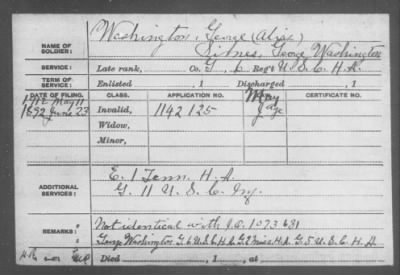 Washington, George (Alias)
NAME OF SOLDIER: Grimes, George Washington
SERVICE: Late rank, Co. G, 6 Reg't U.S.C.H.A.
TERM OF SERVICE: Enlisted , 1 Discharged , 1
DATE OF FILING. CLASS. APPLICATION NO. CERTIFICATE NO.
1912 May 11
1892 June 23 Invalid, 1142 125
Widow,
Minor,
ADDITIONAL SERVICES: E. 1 Tenn. H.A.
G. 11 U.S.C. Inf.
REMARKS: Not identical with I.O. 1073 681
George Washington G. 6 U.S.C.H.A. G. 2 Miss. H.A. G. 5 U.S.C.H.A.
Died , 1 , at